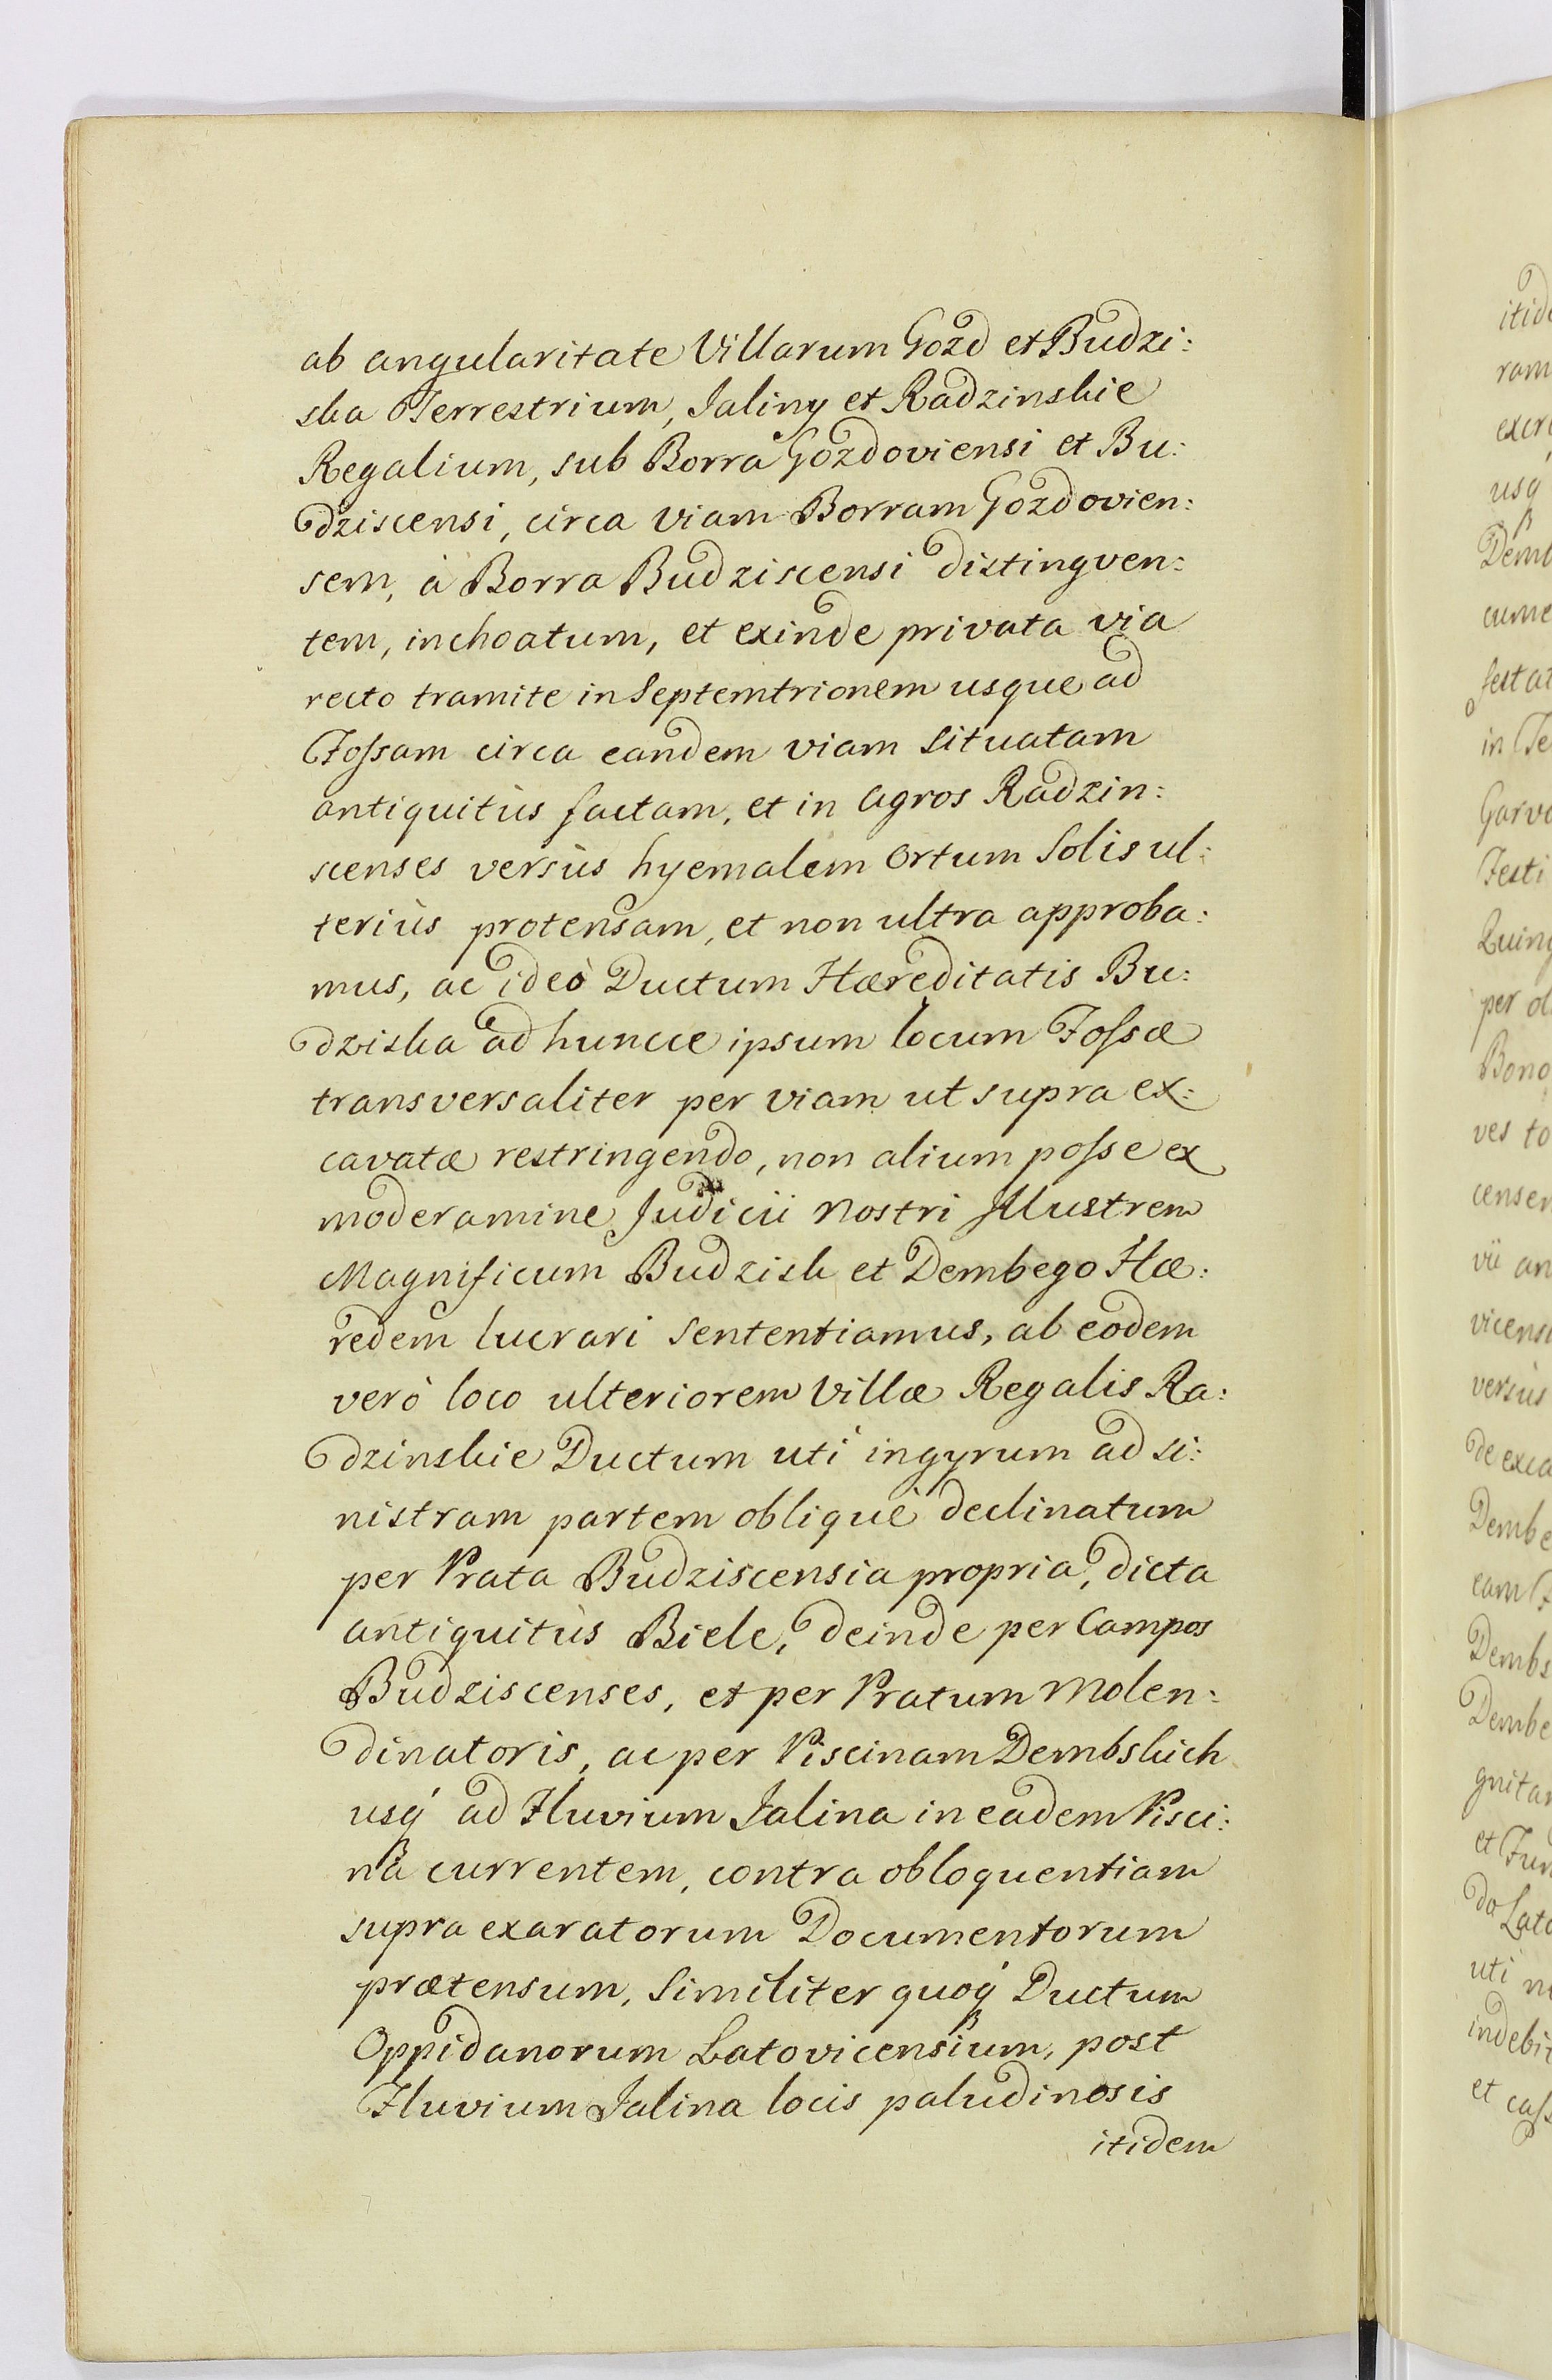 ab angularitate Villarum Gozd et Budzi:
ska Terrestrium, Jaliny et Radzinskie
Regalium, sub Borrâ Gozdoviensi et Bu:
dziscensi, circa viam Borram Gozdovien:
sem, à Borra Budziscensi distingven:
tem, inchoatum, et exinde privata via
recto tramite in Septemtrionem usque ad
Fossam circa eandem viam situatam
antiquitùs factam, et in Agros Radzin:
scenses versùs hyemalem Ortum Solis ul:
teriùs protensam, et non ultra approba:
mus, ac ideò Ductum Hæreditatis Bu:
dziska ad huncce ipsum locum Fossæ
transversaliter per viam ut supra ex:
cavatæ restringendo, non alium posse ex
moderamine Judicii nostri Illustrem
Magnificum Budzisk et Dembego Hæ:
redem lucrari sententiamus, ab eodem
verò loco ulteriorem Villæ Regalis Ra:
dzinskie Ductum uti in gyrum ad si:
nistram partem obliquè declinatum
per Prata Budziscensia propria, dicta
antiquitùs Biele, deinde per Campos
Budziscenses, et per Pratum Molen:
dinatoris, ac per Piscinam Dembskich
usq́ ad Fluvium Jalina in eadem Pisci:
nâ currentem, contra obloquentiam
supra exaratorum Documentorum
prætensum, similiter quoq́ Ductum
Oppidanorum Latovicensium, post
Fluvium Jalina locis paludinosis
itidem